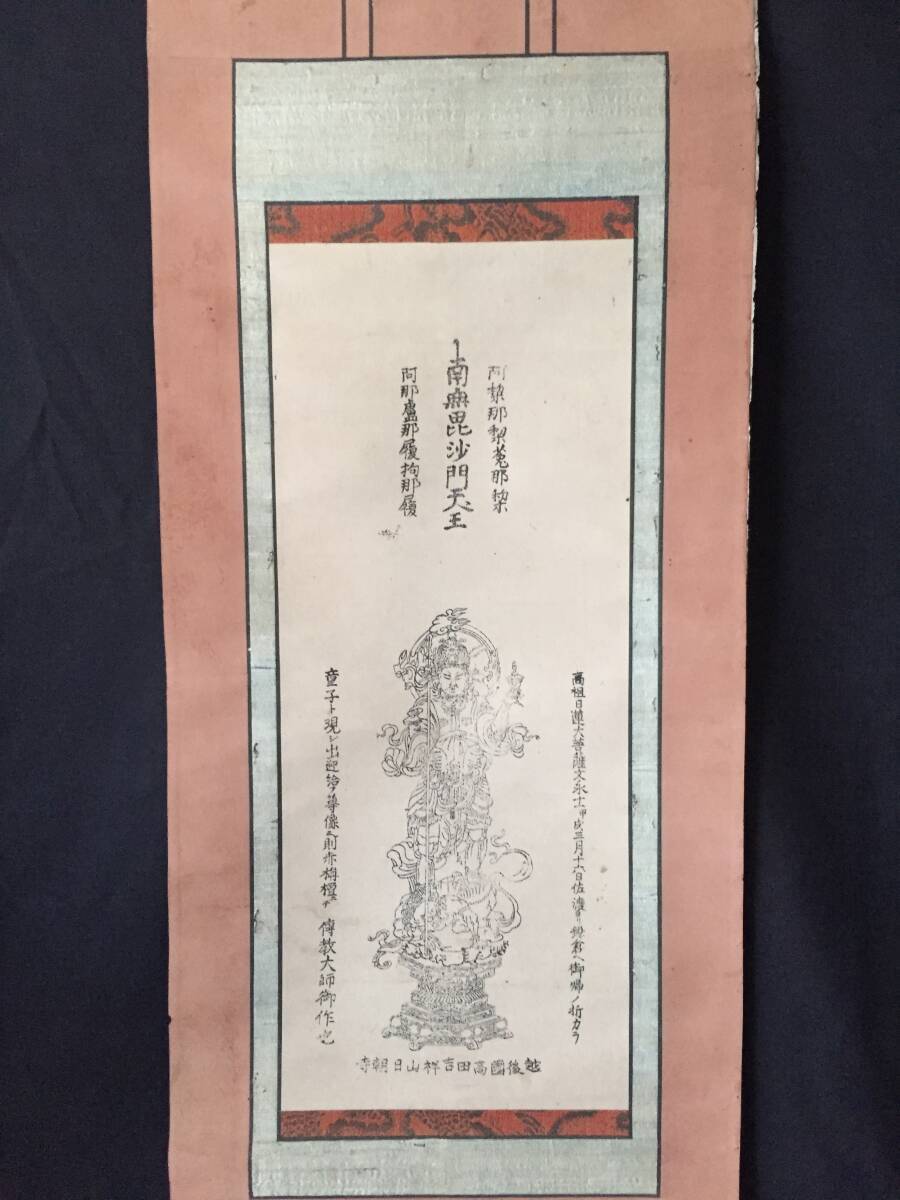 阿犂那犂㝹那犂
南無毘沙門天王
阿那盧那履拘那履
高祖日蓮大菩薩文永十一甲戌三月十六日佐渡ヨリ鎌倉ヘ御帰ノ折カラ
童子ト現シ出迎給フ尊像ニ則赤栴檀ニテ傳教大師御作也
越後國高田吉祥山日朝寺